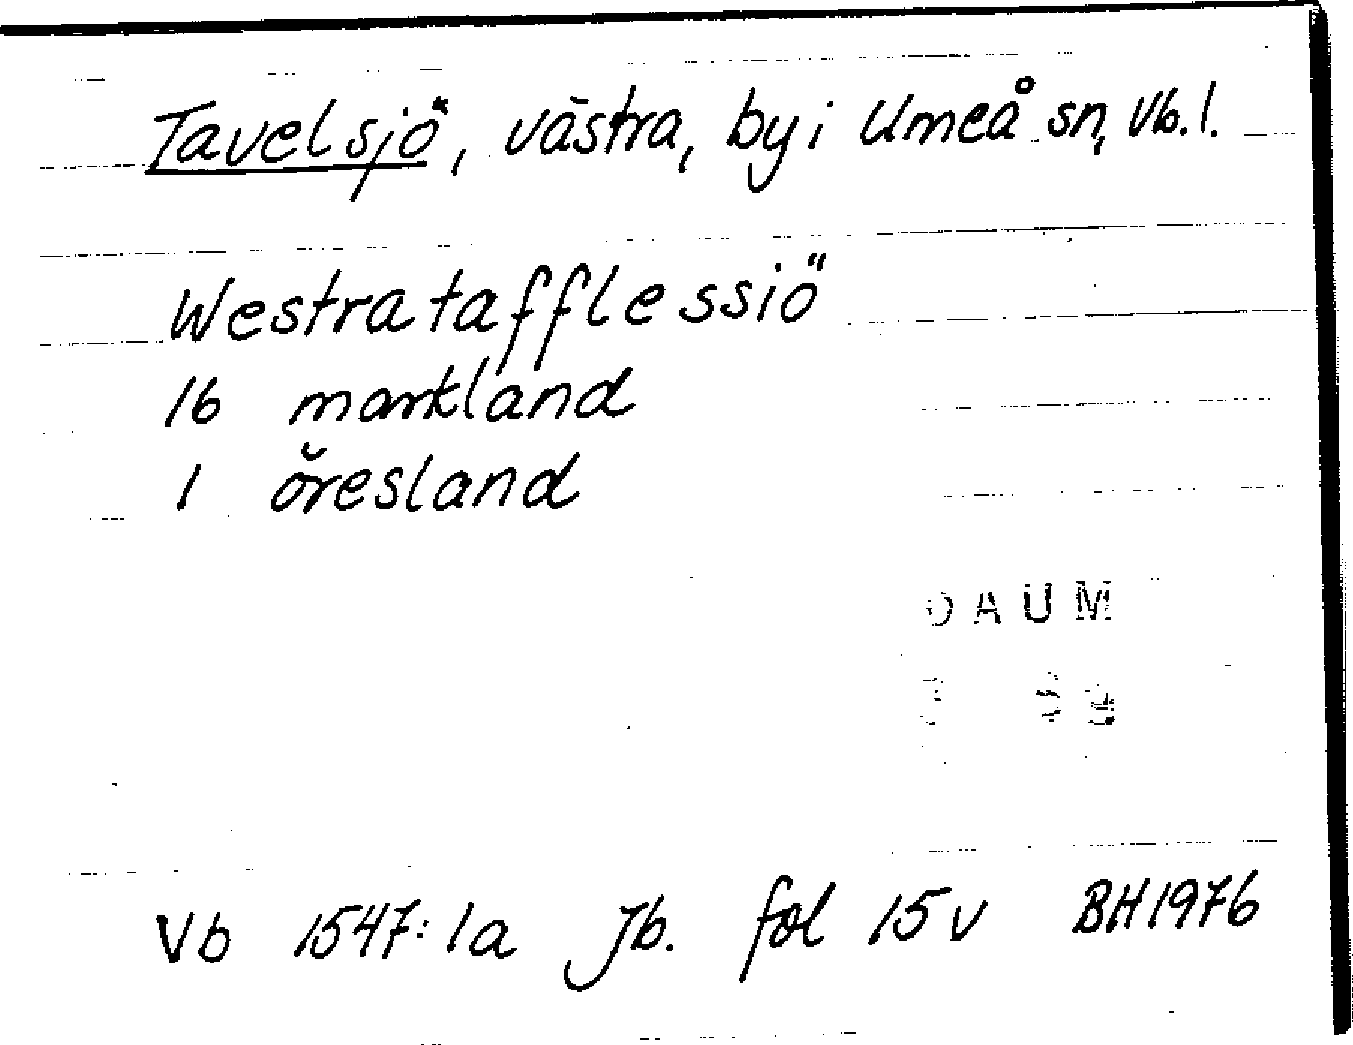 Tavelsjö, västra, by i Umeå sn, Vb.l.
Westra tafflessiö
16 markland
1 öresland
DAUM
Vb 1547:1a Jb. fol 15 v BH1976